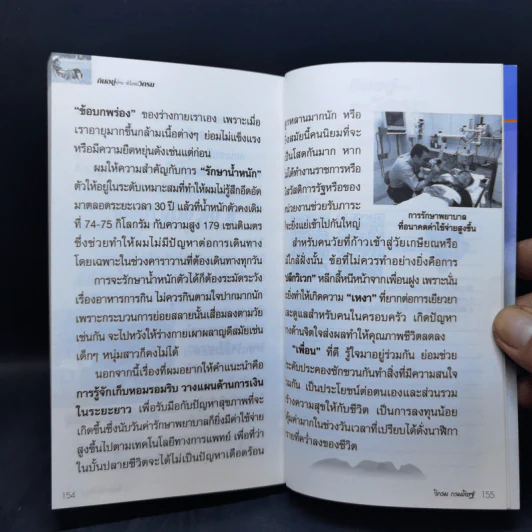 กินอยู่ง่าย สไตล์วิกรม
"ข้อบกพร่อง" ของร่างกายเราเอง เพราะเมื่อ
เราอายุมากขึ้นกล้ามเนื้อต่างๆ ย่อมไม่แข็งแรง
หรือมีความยืดหยุ่นดังเช่นแต่ก่อน
ผมให้ความสำคัญกับการ "รักษาน้ำหนัก"
ตัวให้อยู่ในระดับเหมาะสมที่ทำให้ผมไม่รู้สึกอึดอัด
มาตลอดระยะเวลา 30 ปี แล้วที่น้ำหนักตัวคงเดิม
ที่ 74-75 กิโลกรัม กับความสูง 179 เซนติเมตร
ซึ่งช่วยทำให้ผมไม่มีปัญหาต่อการเดินทาง
โดยเฉพาะในช่วงคาราวานที่ต้องเดินทางทุกวัน
การจะรักษาน้ำหนักตัวได้ก็ต้องระมัดระวัง
เรื่องอาหารการกิน ไม่ควรกินตามใจปากมากนัก
เพราะกระบวนการย่อยสลายนั้นเสื่อมลงตามวัย
เช่นกัน จะไปหวังให้ร่างกายเผาผลาญดีสมัยเช่น
เด็กๆ หนุ่มสาวก็คงไม่ได้
นอกจากนี้เรื่องที่ผมอยากให้คำแนะนำคือ
การรู้จักเก็บหอมรอมริบ วางแผนด้านการเงิน
ในระยะยาว เพื่อรับมือกับปัญหาสุขภาพที่จะ
เกิดขึ้นซึ่งนับวันค่ารักษาพยาบาลก็ยิ่งมีค่าใช้จ่าย
สูงขึ้นไปตามเทคโนโลยีทางการแพทย์ เพื่อที่ว่า
ในบั้นปลายชีวิตจะได้ไม่เป็นปัญหาเดือดร้อน
154
ลูกหลานมากนัก หรือ
สมัยนี้คนนิยมที่จะ
เป็นโสดกันมาก หาก
ได้ทำงานราชการหรือ
สวัสดิการรัฐหรือของ
หน่วยงานช่วยรับภาระ
ยิ่งแย่เข้าไปกันใหญ่
การรักษาพยาบาล
ที่อนาคตค่าใช้จ่ายสูงขึ้น
สำหรับคนวัยที่ก้าวเข้าสู่วัยเกษียณหรือ
ใกล้ฝั่งนั้น ข้อที่ไม่ควรทำอย่างยิ่งคือการ
"ปลีกวิเวก" หลีกลี้หนีหน้าจากเพื่อนฝูง เพราะนั่น
ยิ่งทำให้เกิดความ "เหงา" ที่ยากต่อการเยียวยา
และดูแลสำหรับคนในครอบครัว เกิดปัญหา
ทางด้านจิตใจส่งผลทำให้คุณภาพชีวิตลดลง
"เพื่อน" ที่ดี รู้ใจมาอยู่ร่วมกัน ย่อมช่วย
ประคับประคองชักชวนกันทำสิ่งที่มีความสนใจ
ร่วมกัน เป็นประโยชน์ต่อตนเองและส่วนรวม
สร้างความสุขให้กับชีวิต เป็นการลงทุนน้อย
คุ้มค่ามากในช่วงวันเวลาที่เปรียบได้ดั่งนาฬิกา
ทรายที่คว่ำลงของชีวิต
วิกรม กรมดิษฐ์ 155